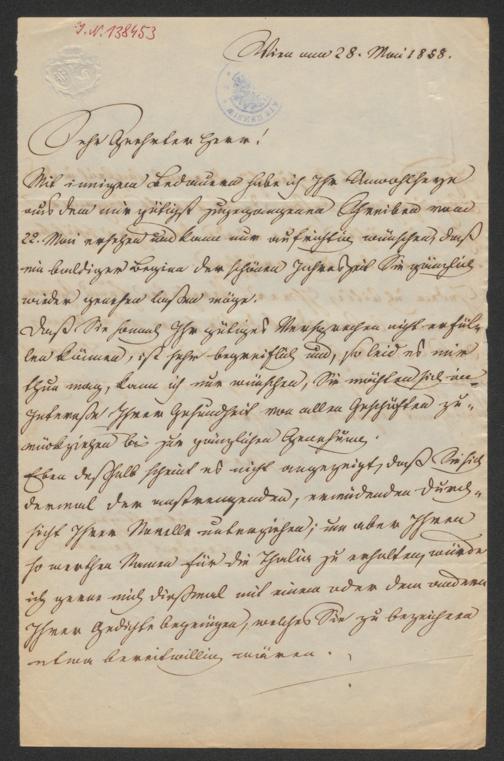 I.N. 138453
Wien am 28. Mai 1858.
Sehr Geehrter Herr!
Mit innigem Bedauern habe ich Ihr Unwohlseyn
aus dem mir gütigst zugegangenen Schreiben vom
22. Mai ersehen und kann nur aufrichtig wünschen, daß
ein baldiger Beginn der schönen Jahreszeit Sie gänzlich
wieder genesen laßen möge.
Daß Sie somit Ihr gütiges Versprechen nicht erfül-
len können, ist sehr begreiflich und, so leid es mir
thun mag, kann ich nur wünschen, Sie möchten sich im
Interesse Ihrer Gesundheit von allen Geschäften zu-
rückziehen bis zur gänzlichen Genesung.
Eben deßhalb scheint es nicht angezeigt, daß Sie sich
dermal der anstrengenden, ermüdenden Durch-
sicht Ihrer Novelle unterziehen; um aber Ihren
so werthen Namen für die Thalia zu erhalten, würde
ich gerne mich dießmal mit einem oder dem andern
Ihrer Gedichte begnügen, welches Sie zu bezeichnen
etwa bereitwillig wären.